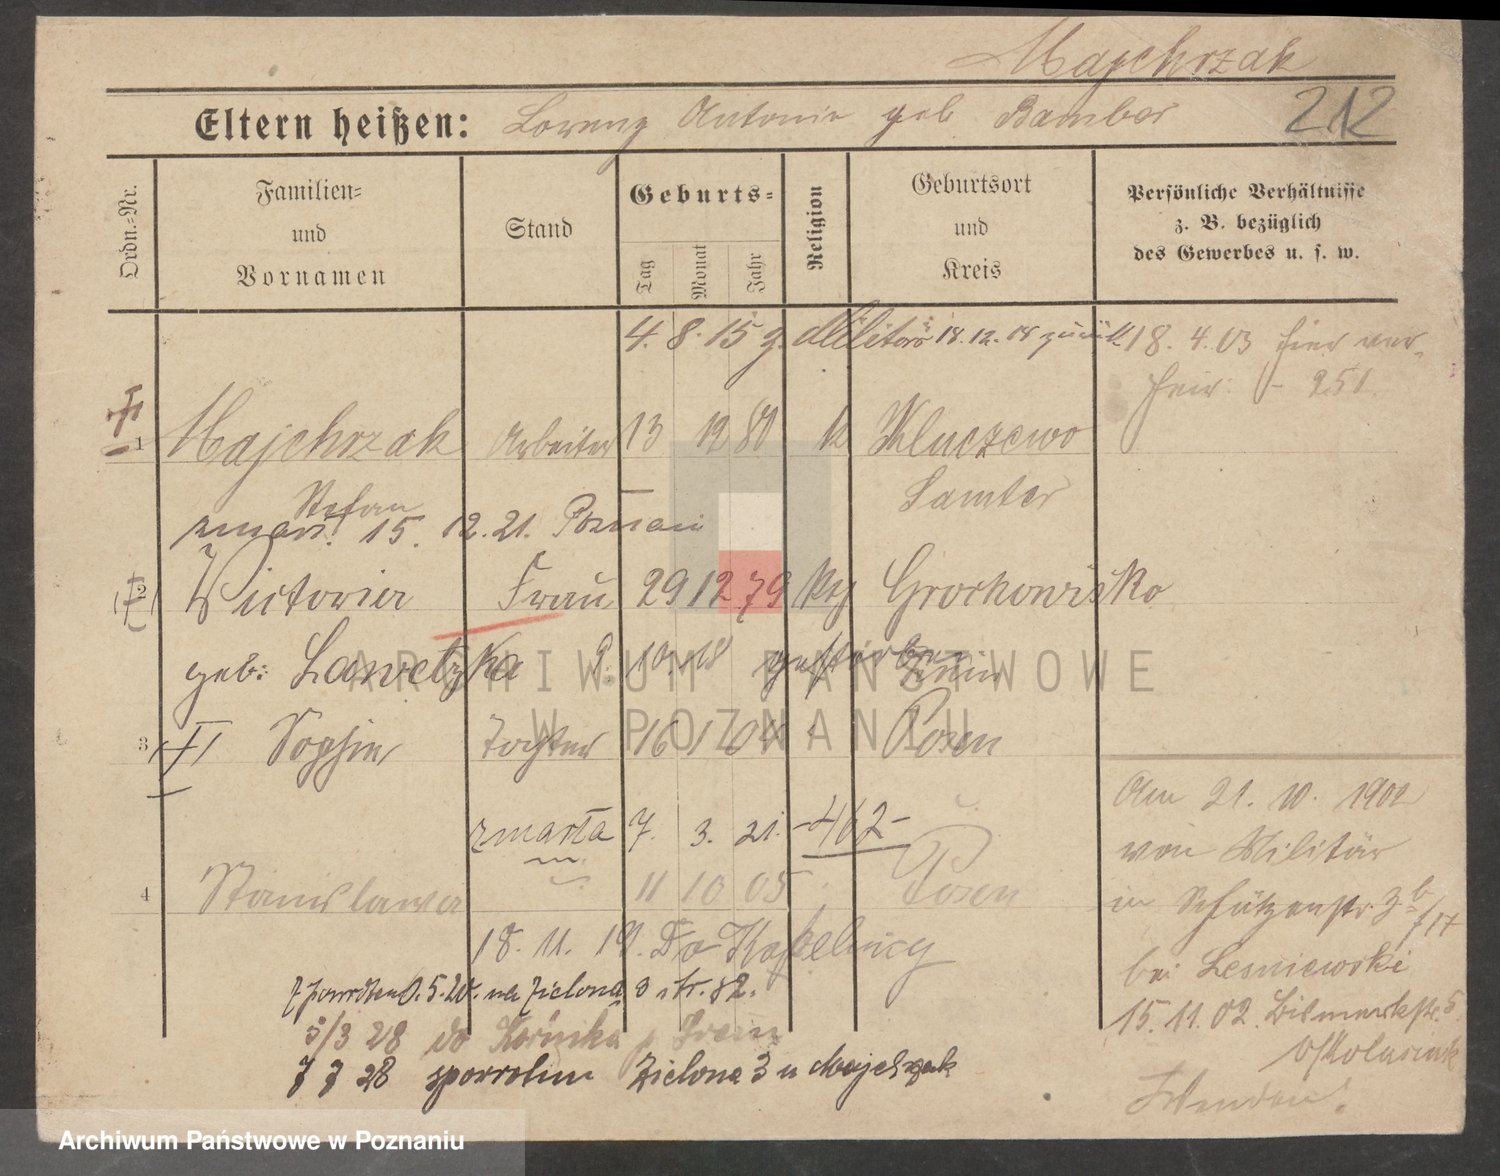 Majchrzak
Eltern heißen: Lorenz Antonie geb Bamber
212
Ordn.-Nr.
Familien- und Vornamen
Stand
Geburts-
Tag
Monat
Jahr
Religion
Geburtsort und Kreis
Persönliche Verhältnisse z. B. bezüglich des Gewerbes u. s. w.
4. 8. 15 z. Militär 18. 12. 18 zurück
18. 4. 03 hier ver-
heir: - 251.
1 Majchrzak Arbeiter 13 12 81 k Kluczewo
Stefan Samter
zmarł 15. 12. 21. Poznań
2 Victoria Frau 29 12 79 kth
geb: Lawetzka 9. 10. 18 gestorben
3 Sophie Tochter 16 1 04 Posen
zmarła 7. 3. 21. -462-
4 Stanislawa 11 10 05 Posen
18. 11. 19. Do
5.20. na Zielona 3 str. 82.
5/3 28 do
7 7 28 Zielona 3 u Majchrzak
Am 21. 10. 1902
von Militär
in Schützenstr 3b
bei Lesniewski
15. 11. 02. Bismarckstr. 5
ARCHIWUM PAŃSTWOWE
W POZNANIU
Archiwum Państwowe w Poznaniu